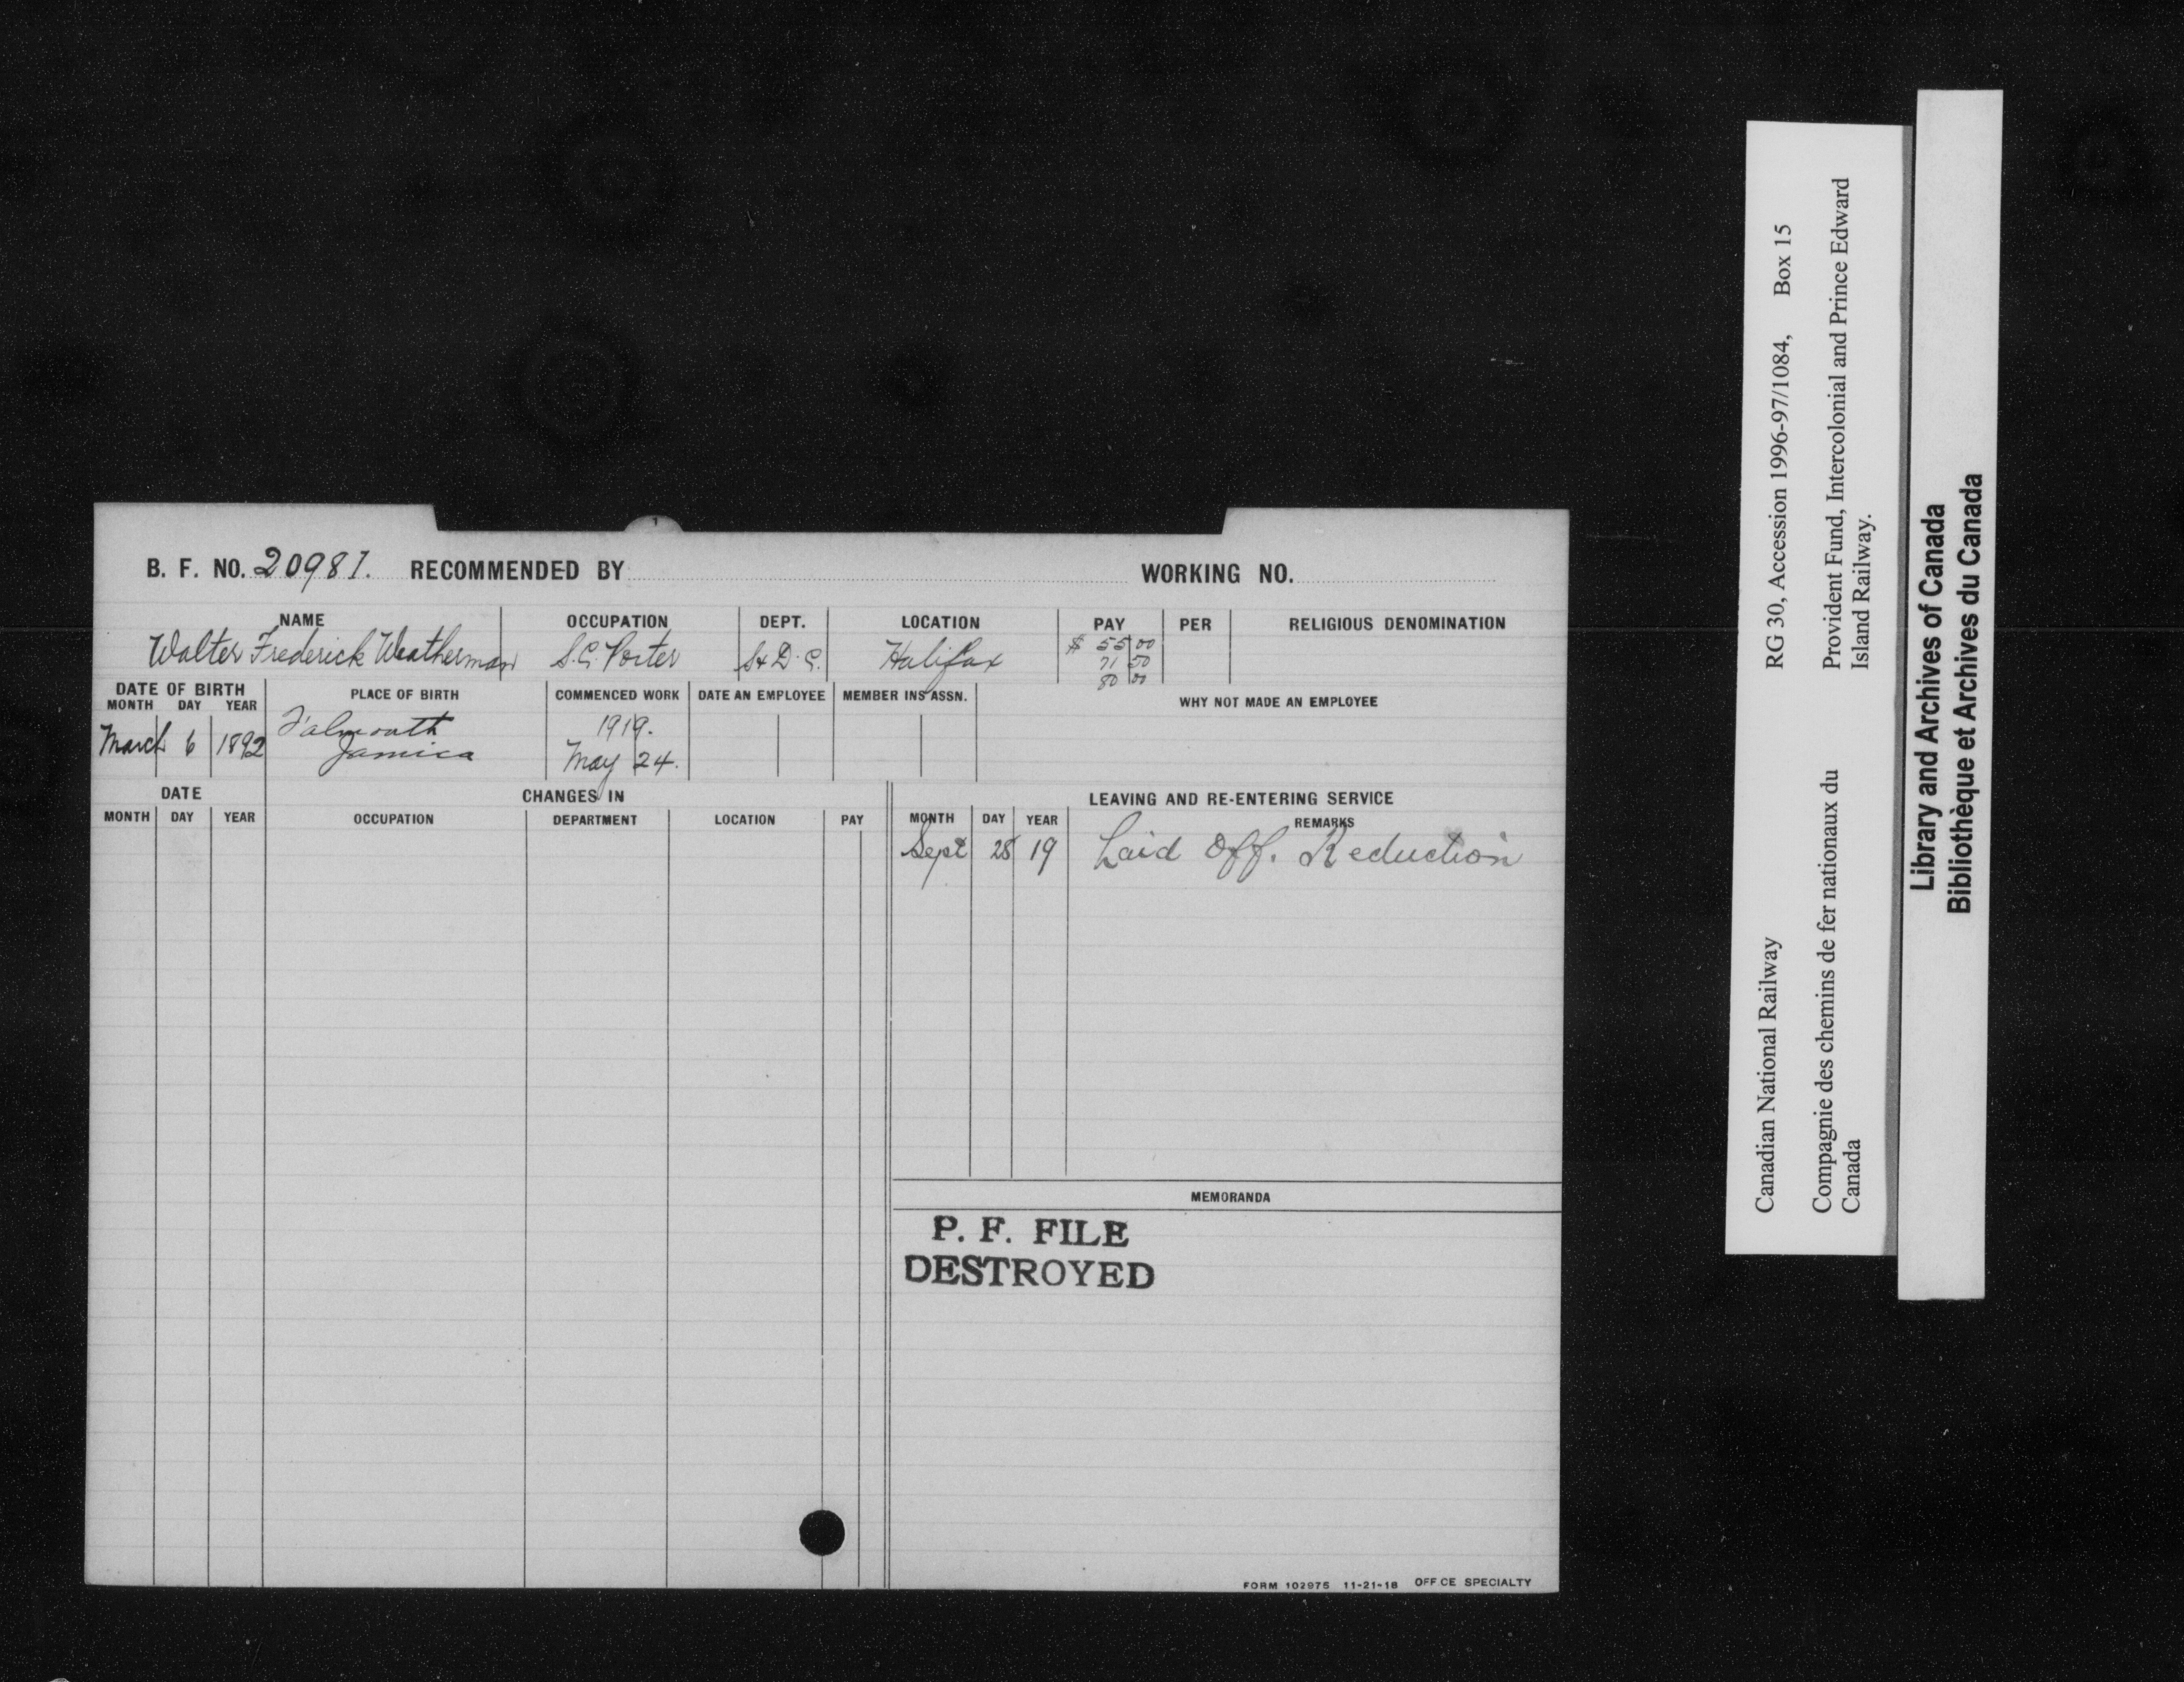 B. F. NO. 20981. RECOMMENDED BY WORKING NO.
NAME OCCUPATION DEPT. LOCATION PAY PER RELIGIOUS DENOMINATION
Walter Frederick Weatherman S.C. Porter S & D. C. Halifax $ 55 00
71 50
80 00
DATE OF BIRTH PLACE OF BIRTH COMMENCED WORK DATE AN EMPLOYEE MEMBER INS ASSN. WHY NOT MADE AN EMPLOYEE
MONTH DAY YEAR
March 6 1892 Falmouth 1919.
Jamica May 24.
DATE CHANGES IN LEAVING AND RE-ENTERING SERVICE
MONTH DAY YEAR OCCUPATION DEPARTMENT LOCATION PAY MONTH DAY YEAR REMARKS
Sept 28 19 Laid Off. Reduction
MEMORANDA
P. F. FILE
DESTROYED
FORM 102975 11-21-18 OFFICE SPECIALTY
Canadian National Railway RG 30, Accession 1996-97/1084, Box 15
Compagnie des chemins de fer nationaux du Provident Fund, Intercolonial and Prince Edward
Canada Island Railway.
Library and Archives of Canada
Bibliothèque et Archives du Canada